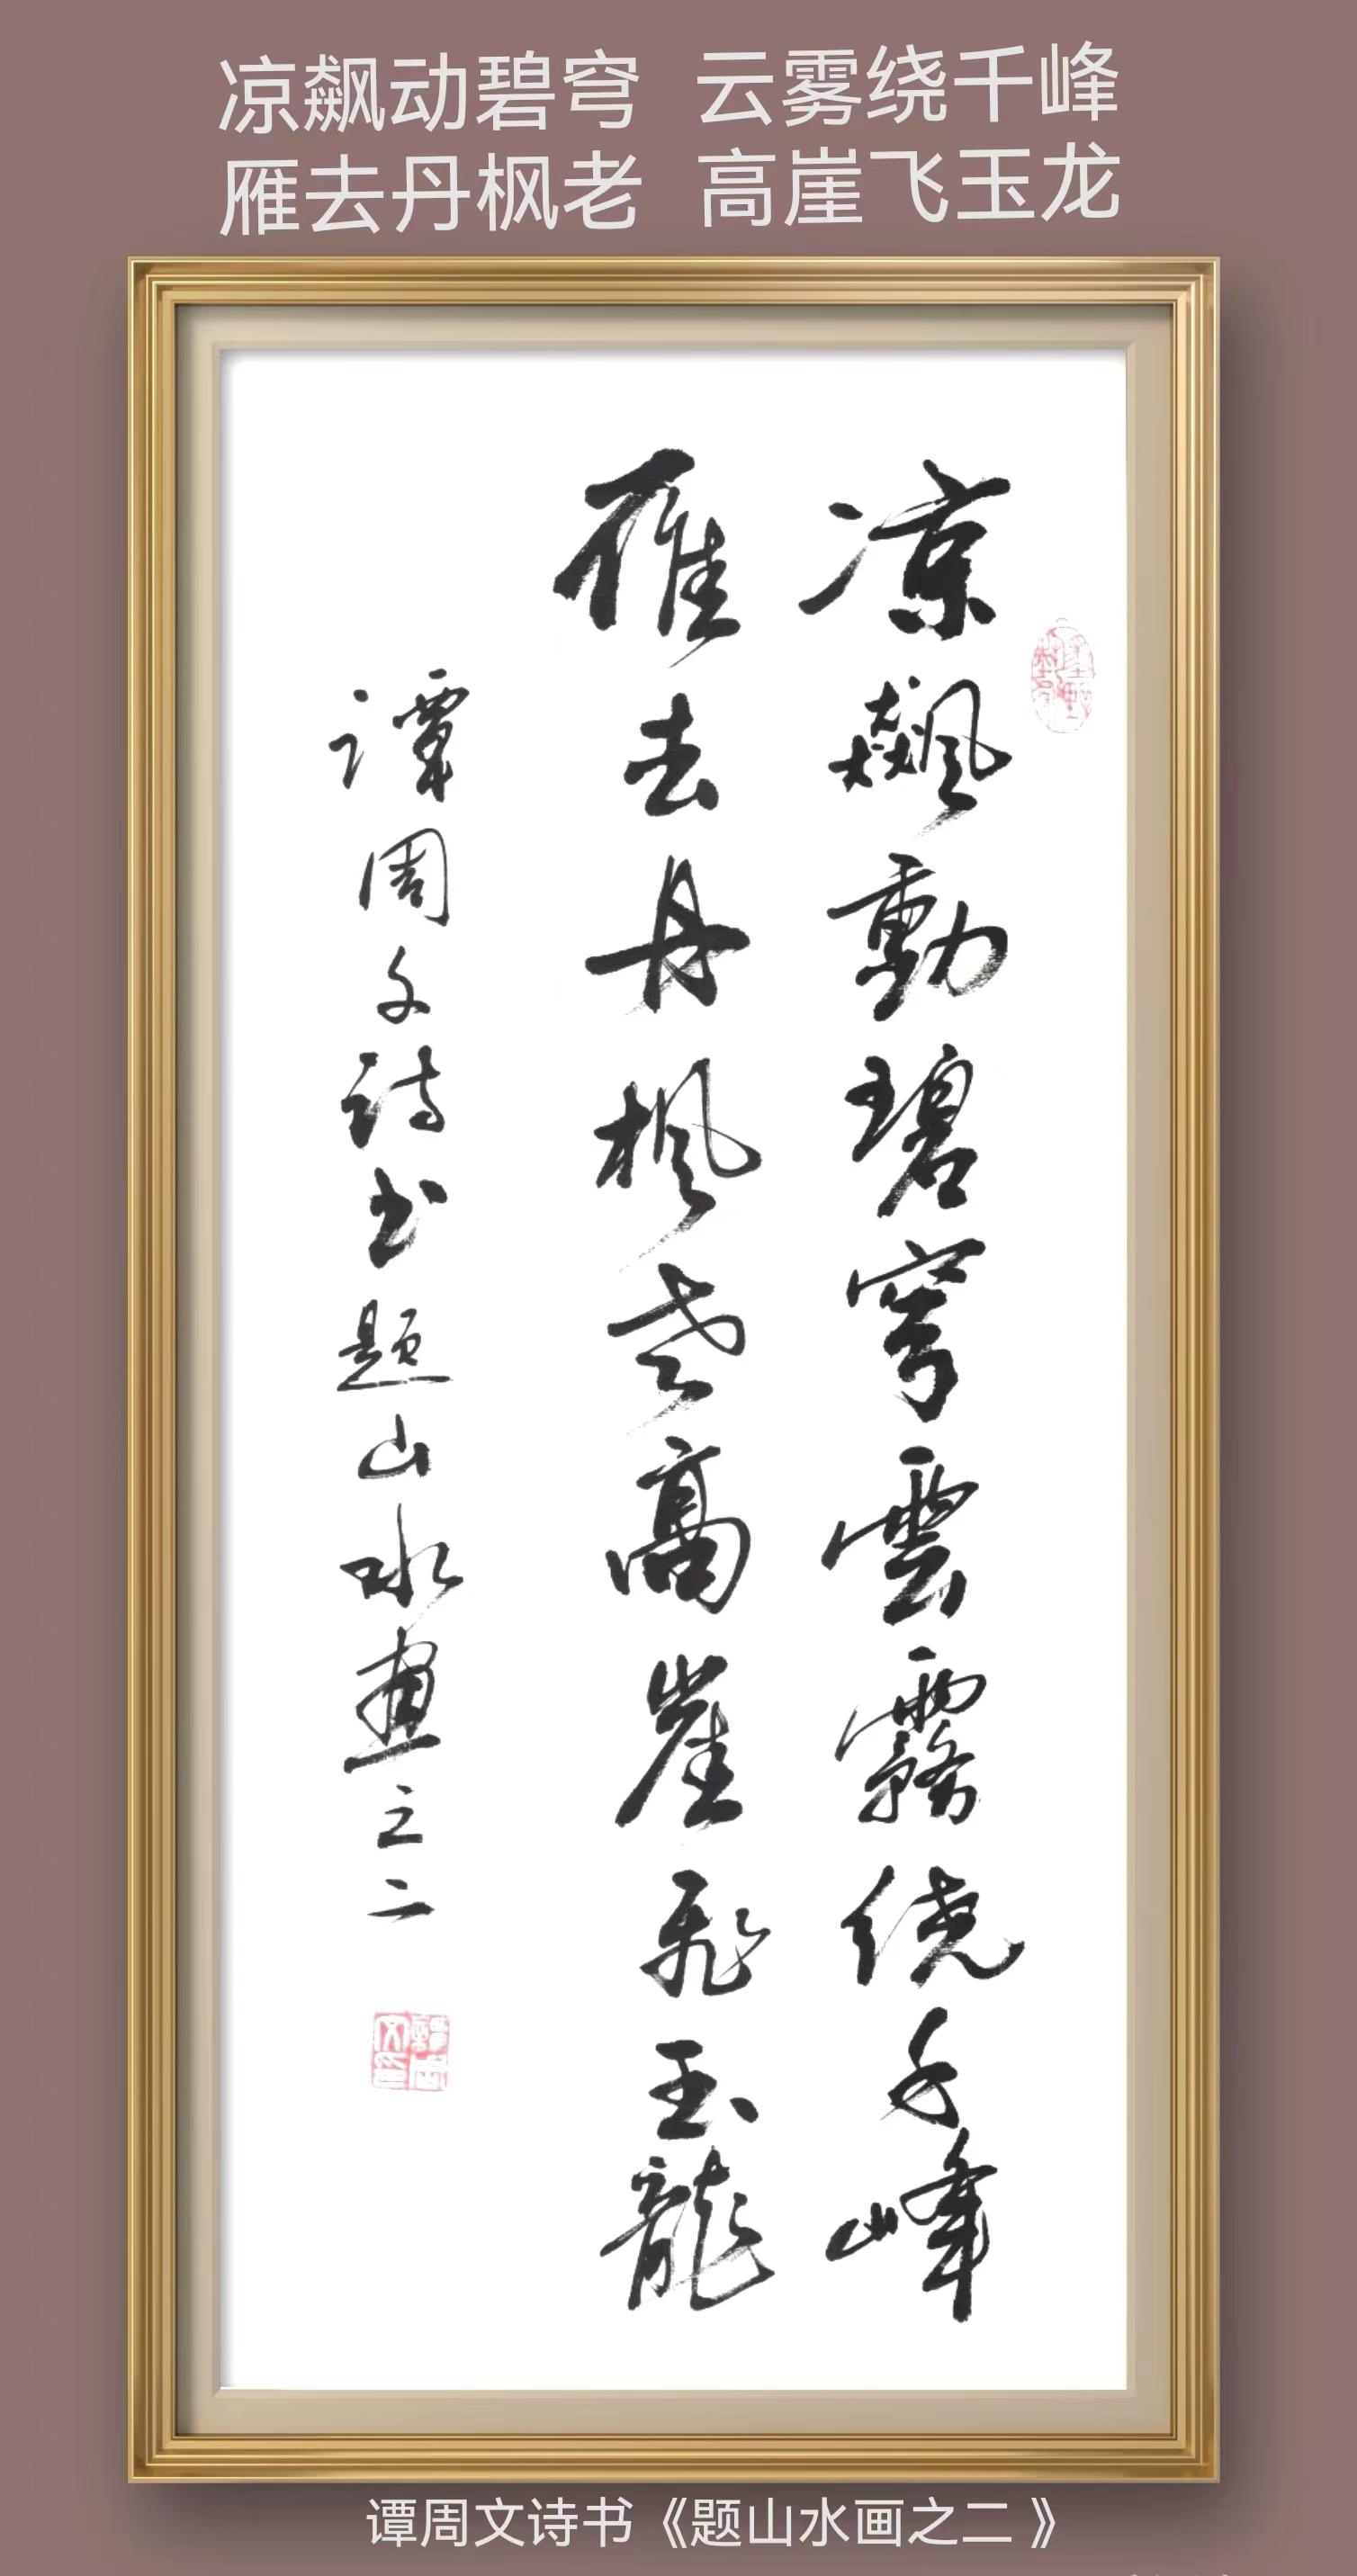 凉飙动碧穹 云雾绕千峰
雁去丹枫老 高崖飞玉龙
凉飙動碧穹雲霧绕千峰
雁去丹枫老高崖飛玉龍
谭周文诗书题山水画之二
谭周文诗书《题山水画之二》